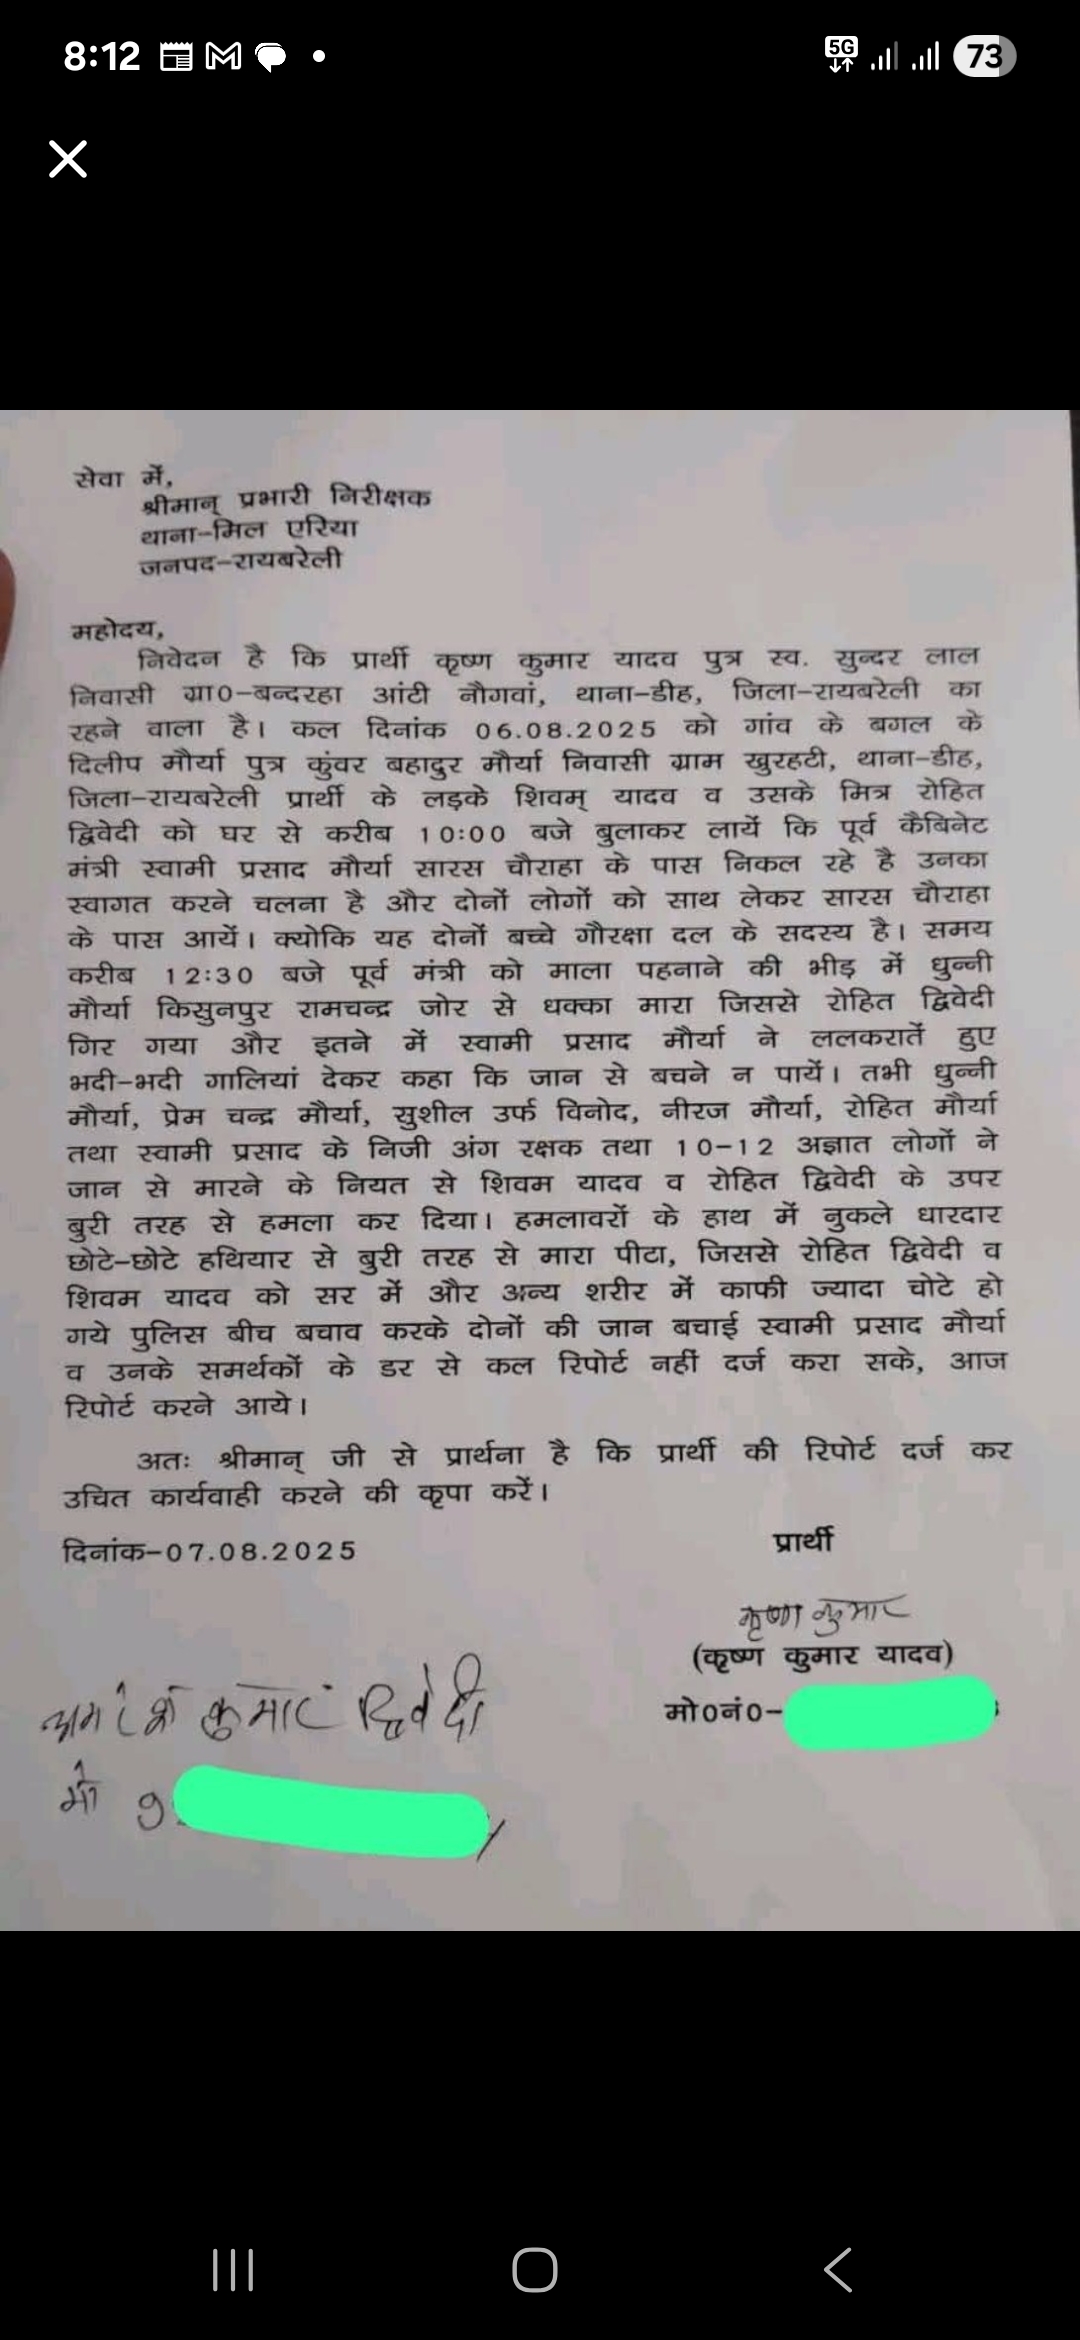 8:12
5G
73
सेवा में,
श्रीमान् प्रभारी निरीक्षक
थाना-मिल एरिया
जनपद-रायबरेली
महोदय,
निवेदन है कि प्रार्थी कृष्ण कुमार यादव पुत्र स्व. सुन्दर लाल
निवासी ग्रा0-बन्दरहा आंटी नौगवां, थाना-डीह, जिला-रायबरेली का
रहने वाला है। कल दिनांक 06.08.2025 को गांव के बगल के
दिलीप मौर्या पुत्र कुंवर बहादुर मौर्या निवासी ग्राम खुरहटी, थाना-डीह,
जिला-रायबरेली प्रार्थी के लड़के शिवम् यादव व उसके मित्र रोहित
द्विवेदी को घर से करीब 10:00 बजे बुलाकर लायें कि पूर्व कैबिनेट
मंत्री स्वामी प्रसाद मौर्या सारस चौराहा के पास निकल रहे है उनका
स्वागत करने चलना है और दोनों लोगों को साथ लेकर सारस चौराहा
के पास आयें। क्योकि यह दोनों बच्चे गौरक्षा दल के सदस्य है। समय
करीब 12:30 बजे पूर्व मंत्री को माला पहनाने की भीड़ में धुन्नी
मौर्या किसुनपुर रामचन्द्र जोर से धक्का मारा जिससे रोहित द्विवेदी
गिर गया और इतने में स्वामी प्रसाद मौर्या ने ललकरातें हुए
भदी-भदी गालियां देकर कहा कि जान से बचने न पायें। तभी धुन्नी
मौर्या, प्रेम चन्द्र मौर्या, सुशील उर्फ विनोद, नीरज मौर्या, रोहित मौर्या
तथा स्वामी प्रसाद के निजी अंग रक्षक तथा 10-12 अज्ञात लोगों ने
जान से मारने के नियत से शिवम यादव व रोहित द्विवेदी के उपर
बुरी तरह से हमला कर दिया। हमलावरों के हाथ में नुकले धारदार
छोटे-छोटे हथियार से बुरी तरह से मारा पीटा, जिससे रोहित द्विवेदी व
शिवम यादव को सर में और अन्य शरीर में काफी ज्यादा चोटे हो
गये पुलिस बीच बचाव करके दोनों की जान बचाई स्वामी प्रसाद मौर्या
व उनके समर्थकों के डर से कल रिपोर्ट नहीं दर्ज करा सके, आज
रिपोर्ट करने आये।
अतः श्रीमान् जी से प्रार्थना है कि प्रार्थी की रिपोर्ट दर्ज कर
उचित कार्यवाही करने की कृपा करें।
दिनांक-07.08.2025
प्रार्थी
कृष्ण कुमार
(कृष्ण कुमार यादव)
मो0नं0-
कुमार द्विवेदी
मो 9